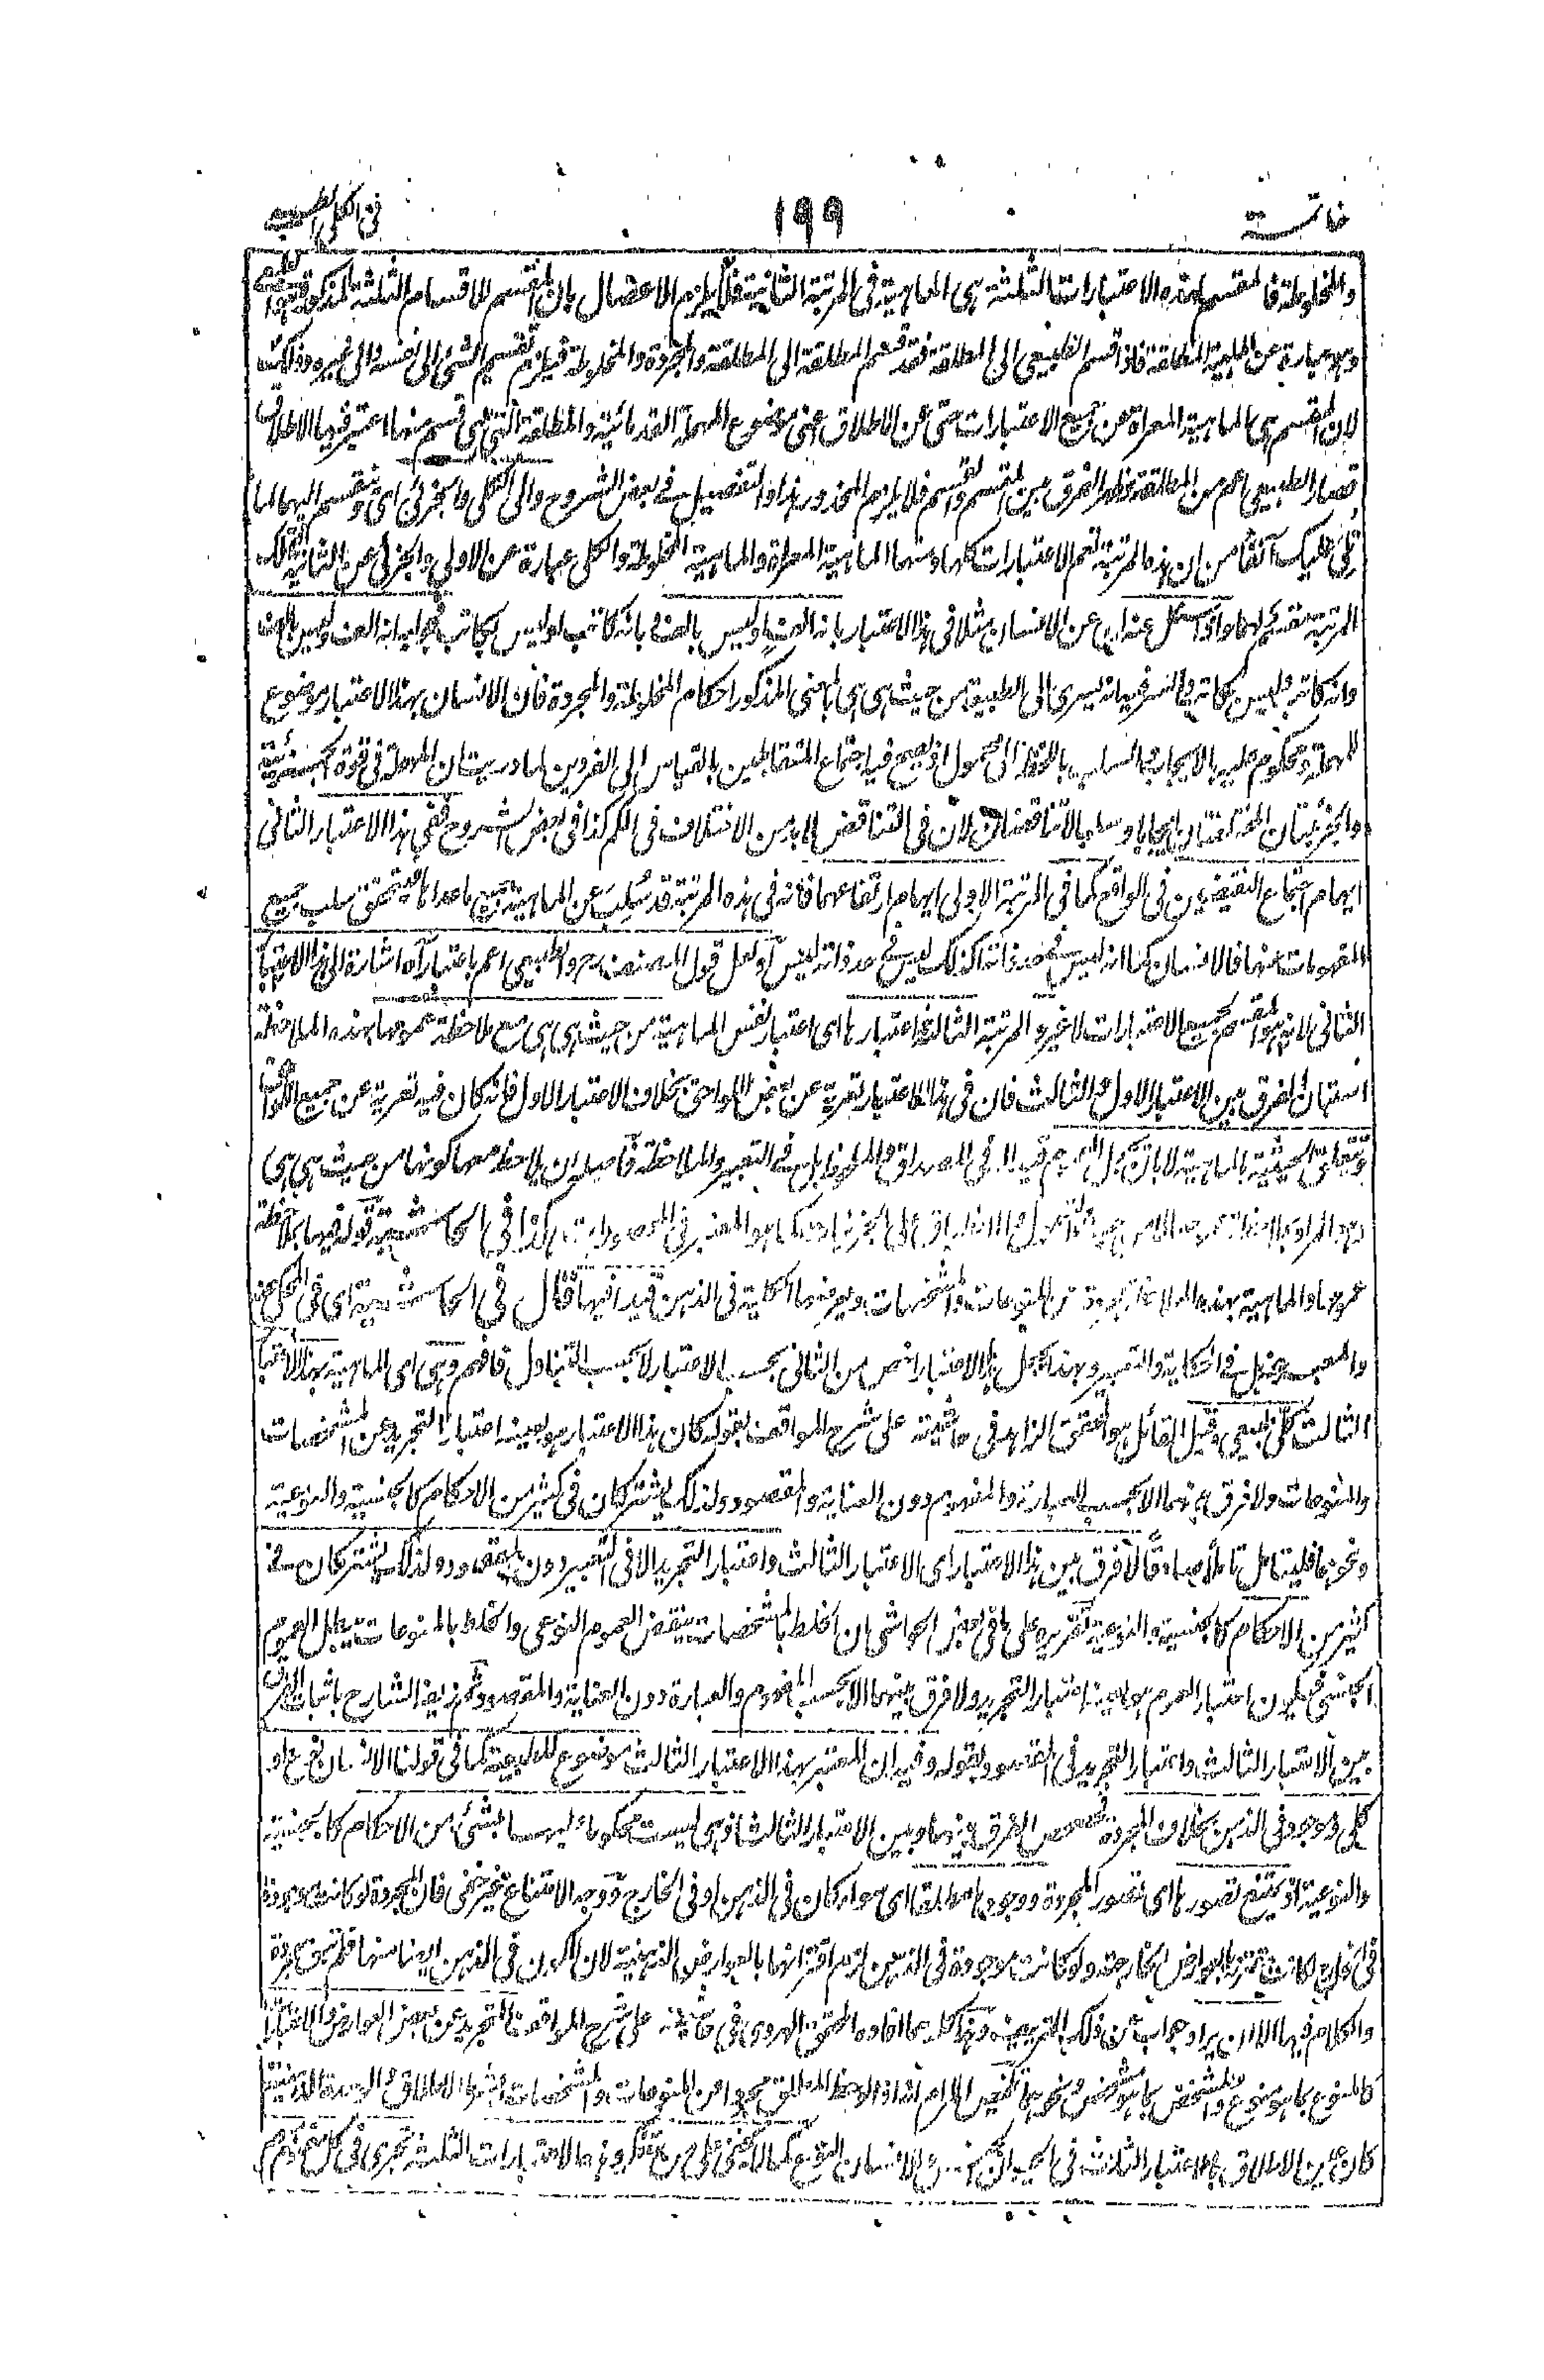 خاتمة
١٩٩
في الكلي الطبيعي
والمخلوطة فالمقسم لهذه الاعتبارات الثلثة هي الماهية في المرتبة الثانية فلا يلزم الاعضال بان المقسم للاقسام الثلثة المذكورة
وهو عبارة عن الماهية المطلقة فاذا قسم الطبيعي الى المطلقة فقد قسم المطلقة الى المطلقة والمجردة والمخلوطة فيلزم تقسيم الشئ الى نفسه والى غيره وذلك
لان المقسم هي الماهية المعراة عن جميع الاعتبارات حتى عن الاطلاق اعني موضوع المهملة القدمائية والمطلقة التي هي قسم منها اعتبر فيها الاطلاق
فصار الطبيعي اعم من المطلقة فظهر الفرق بين المقسم والقسم فلا يلزم المحذور هذا والتفصيل في بعض الشروح والى الكلي والجزئي اي وتنقسم اليهما لما
تلي عليك آنفا من ان هذه المرتبة تعم الاعتبارات كلها ومنها الماهية المعراة والماهية المخلوطة والكلي عبارة عن الاولى والجزئي عن الثانية
المرتبة لو سئل عنه اي عن الانسان مثلا في هذا الاعتبار بانه الف او ليس بالف او بانه كاتب او ليس بكاتب فجوابه انه الف وليس بالف
وانه كاتب وليس بكاتب والسر فيه انه يسري الى الطبيعة من حيث هي هي بالمعنى المذكور احكام المخلوطة والمجردة فان الانسان بهذا الاعتبار موضوع
المهملة ومحكوم عليه بالايجاب والسلب باي محمول اذ يصح فيه اجتماع المتقابلين بالقياس الى الفردين لما دريت ان المهملة في قوة الجزئية
والجزئيتان المختلفتان ايجابا وسلبا لا تتناقضان لان في التناقض لا بد من الاختلاف في الكم كذا في بعض الشروح ففي هذا الاعتبار الثاني
ايهام اجتماع النقيضين في الواقع كما في المرتبة الاولى ايهام ارتفاعهما فانه في هذه المرتبة قد سُلِبَ عن الماهية جميع ما عداها فتحقق سلب جميع
المفهومات عنها فالانسان كما انه ليس كذلك ليس في حد ذاته ليس آ ولعل قول المصنف رح والطبيعي اعم باعتبار آه اشارة الى هذا الاعتبار
الثاني لانه هو المقسم لجميع الاعتبارات لا غير والمرتبة الثالثة اعتبارها اي اعتبار نفس الماهية من حيث هي هي مع ملاحظة عمومها بهذه الملاحظة
استبان الفرق بين الاعتبار الاول والثالث فان في هذا الاعتبار تعرية عن بعض اللواحق بخلاف الاعتبار الاول فانه كان فيه تعرية عن جميع اللواحق
الحيثية بالماهية لا بان يجعل العموم قيدا لا في المصداق والملحوظ بل في التعبير والملاحظة فحاصله ان يلاحظ معها كونها من حيث هي هي
على الجزئيات كما هو المعتبر في المحصورات هكذا في الحاشية قوله فيها بملاحظة
عمومها والماهية بهذه الملاحظة مجردة عن المنوعات والمشخصات ويعرضها الكلية في الذهن قيدا فيها قال في الحاشية اي في المحكي عنه
والمعبر عنه بل في الحكاية والتعبير وبهذا يجعل هذا الاعتبار اخص من الثاني بحسب الاعتبار لا بحسب التناول فافهم وهي اي الماهية بهذا الاعتبار
الثالث كلي طبيعي وقيل القائل هو المحقق الزاهد في حاشيته على شرح المواقف بقوله كان هذا الاعتبار هو بعينه اعتبار التجريد عن المشخصات
والمنوعات ولا فرق بينهما الا بحسب العبارة والمفهوم دون العناية والمقصود ولذلك يشتركان في كثير من الاحكام كالجنسية والنوعية
ونحوهما فليتامل تاملا صادقا لا فرق بين هذا الاعتبار اي الاعتبار الثالث واعتبار التجريد الا في التعبير دون المقصود ولذلك يشتركان في
كثير من الاحكام كالجنسية والنوعية تقريره على ما في بعض الحواشي ان الخلط بالمشخصات ينقض العموم النوعي والخلط بالمنوعات يبطل العموم
الجنسي فيكون اعتبار العموم هو بعينه اعتبار التجريد ولا فرق بينهما الا بحسب المفهوم والعبارة دون العناية والمقصود ثم زيفه الشارح باثبات الفرق
بين الاعتبار الثالث واعتبار التجريد في المقصود بقوله وفيه ان المعتبر بهذا الاعتبار الثالث موضوع للطبيعية كما في قولنا الانسان نوع او
كلي وموجود في الذهن بخلاف المجردة الفرق بينها وبين الاعتبار الثالث اذ هي ليست محكوما عليها بشئ من الاحكام كالجنسية
والنوعية اذ يمتنع تصورها اي تصور المجردة ووجودها مطلقا اي سواء كان في الذهن او في الخارج ووجه الامتناع غير خفي فان المجردة لو كانت موجودة
في الخارج كانت مقترنة بالعوارض الخارجية ولو كانت موجودة في الذهن لزم اقترانها بالعوارض الذهنية لان الكون في الذهن ايضا منها فلم تبق مجردة
والكلام فيها الا ان يراد جواب عن ذلك التعريض وهذا كله مما افاده المحقق الهروي في حاشيته على شرح المواقف بالتجريد عن بعض العوارض والاعتبارات
كالمنوع بما هو منوع والمشخص بما هو مشخص ونحوهما تلخيص المرام انه اذا لوحظ المطلق مجردا من المنوعات والمشخصات بشرط الاطلاق والوحدة الذهنية
كان عين الاطلاق والاعتبار الثالث في الانسان النوع كما لا يخفى على من والاعتبارات الثلث تجري في كل مفهوم